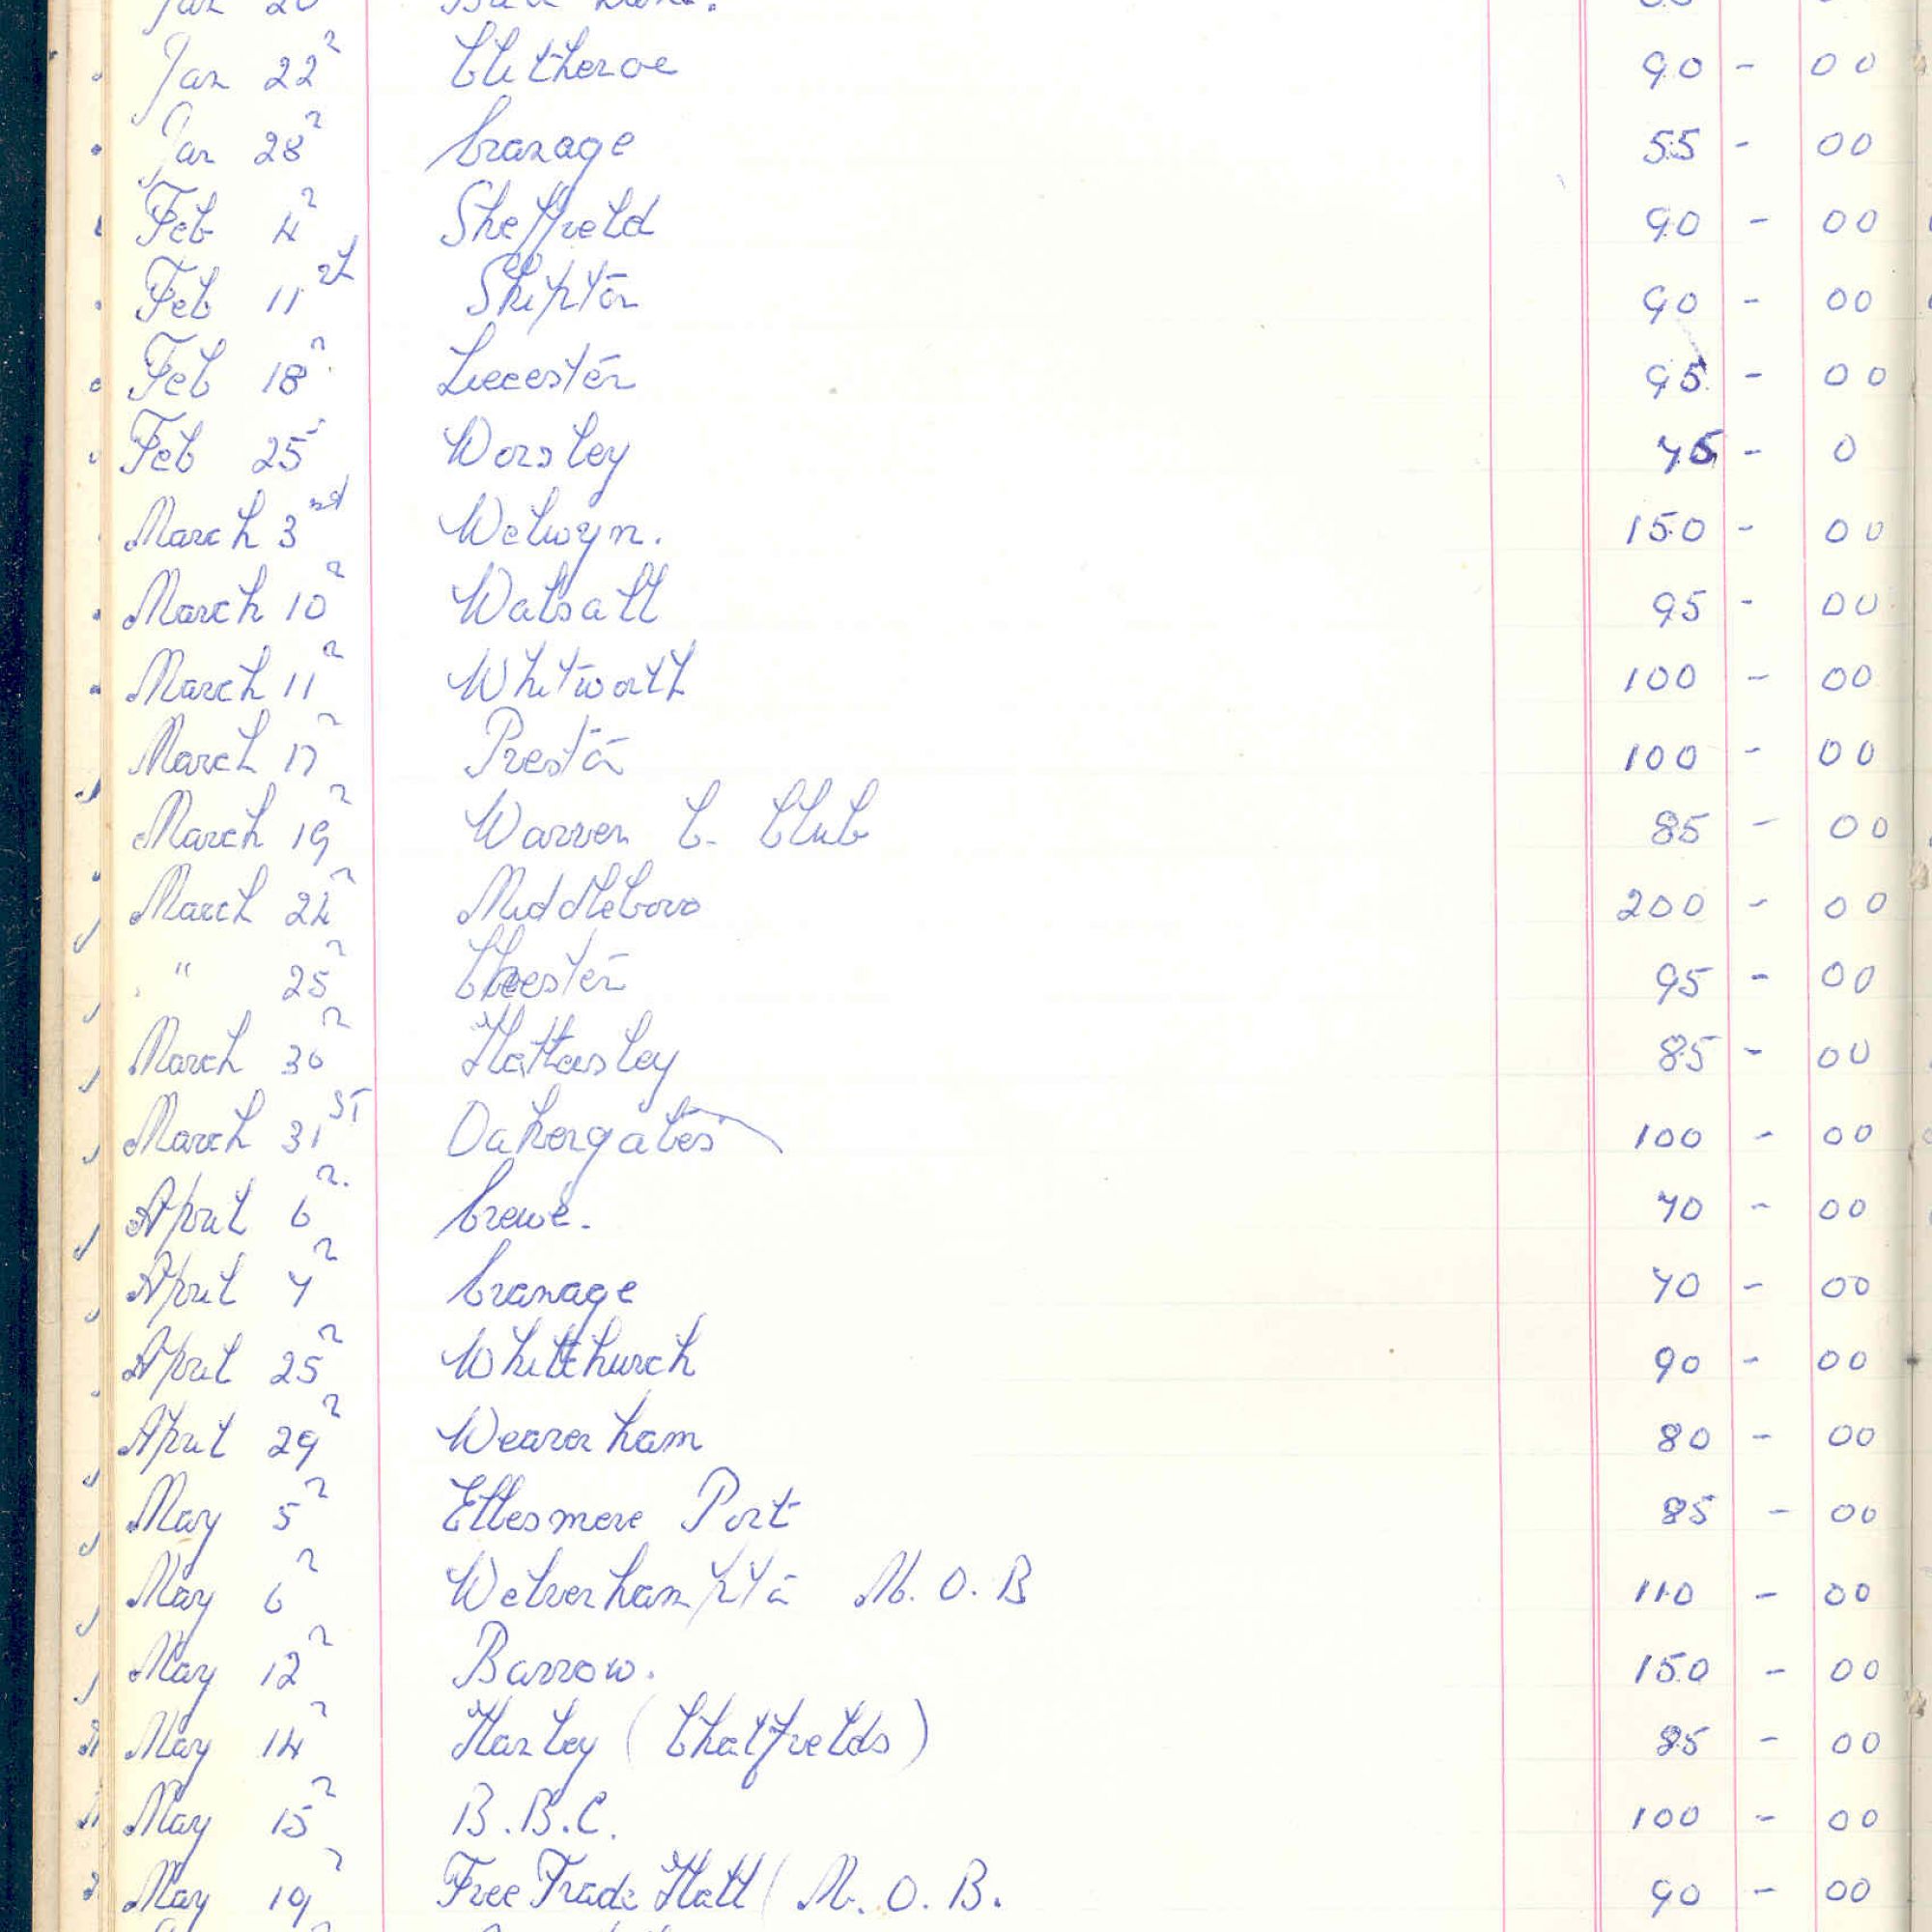 Jan 22 Clitheroe 90 - 00
Jan 28 Cranage 55 - 00
Feb 4 Sheffield 90 - 00
Feb 11th Skipton 90 - 00
Feb 18 Liecester 95 - 00
Feb 25 Worsley 75 - 0
March 3rd Welwyn. 150 - 00
March 10 Walsall 95 - 00
March 11 Whitworth 100 - 00
March 17 Preston 100 - 00
March 19 Warren C. Club 85 - 00
March 24 Middleboro 200 - 00
" 25 Cheester 95 - 00
March 30 Hattersley 85 - 00
March 31st Oakengates 100 - 00
April 6 Crewe. 70 - 00
April 7 Cranage 70 - 00
April 25 Whittchurch 90 - 00
April 29 Weaverham 80 - 00
May 5 Ellesmere Port 85 - 00
May 6 Wolverhampton M. O. B 110 - 00
May 12 Barrow. 150 - 00
May 14 Hanley (Chatfields) 85 - 00
May 15 B.B.C. 100 - 00
May 19 Free Trade Hall (M. O. B. 90 - 00